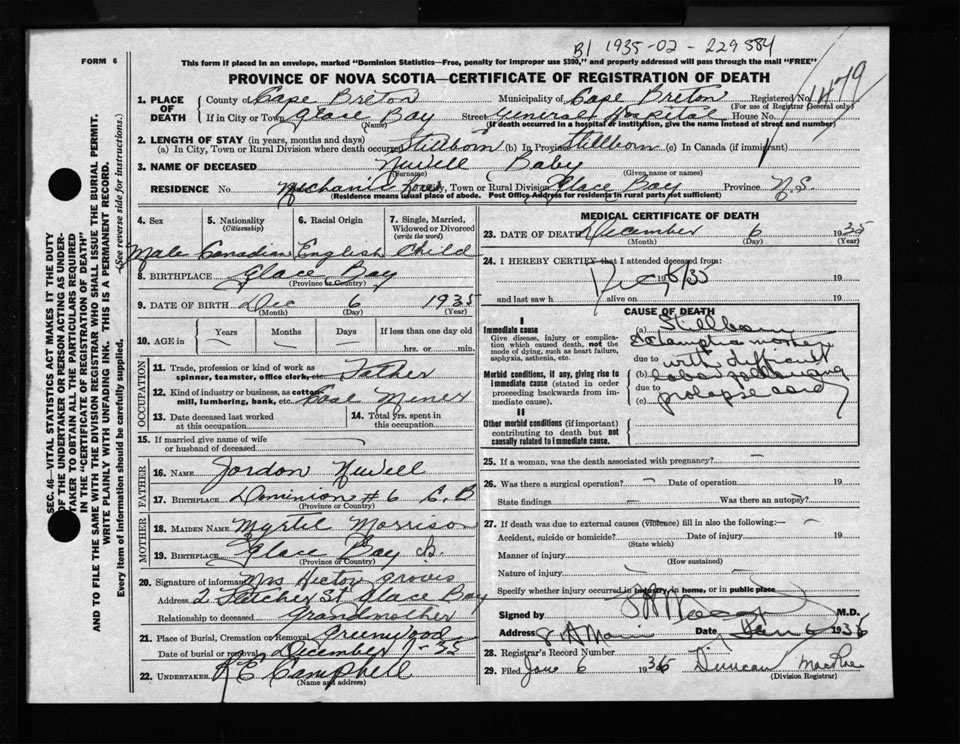 B1 1935-02-229584
FORM 6
This form if placed in an envelope, marked "Dominion Statistics—Free, penalty for improper use $300," and properly addressed will pass through the mail "FREE"
PROVINCE OF NOVA SCOTIA—CERTIFICATE OF REGISTRATION OF DEATH
1479
1. PLACE OF DEATH
County of Cape Breton Municipality of Cape Breton Registered No.
(For use of Registrar General only)
If in City or Town Glace Bay Street General Hospital House No.
(Name) (If death occurred in a hospital or institution, give the name instead of street and number)
2. LENGTH OF STAY (in years, months and days)
(a) In City, Town or Rural Division where death occurred Stillborn (b) In Province Stillborn (c) In Canada (if immigrant)
3. NAME OF DECEASED Newell Baby
(Surname) (Given name or names)
RESIDENCE No. City, Town or Rural Division Glace Bay Province N.S.
(Residence means usual place of abode. Post Office Address for residents in rural parts not sufficient)
4. Sex 5. Nationality (Citizenship) 6. Racial Origin 7. Single, Married, Widowed or Divorced (write the word)
Male Canadian English Child
8. BIRTHPLACE Glace Bay
(Province or Country)
9. DATE OF BIRTH Dec 6 1935
(Month) (Day) (Year)
10. AGE in Years Months Days If less than one day old
hrs. or min.
OCCUPATION
11. Trade, profession or kind of work as spinner, teamster, office clerk, etc. Father
12. Kind of industry or business, as cotton-mill, lumbering, bank, etc. Coal Miner
13. Date deceased last worked at this occupation
14. Total yrs. spent in this occupation
15. If married give name of wife or husband of deceased
FATHER
16. NAME Jordon Newell
17. BIRTHPLACE Dominion #6 C.B
(Province or Country)
MOTHER
18. MAIDEN NAME Myrtle Morrison
19. BIRTHPLACE Glace Bay
(Province or Country)
20. Signature of informant Mrs Hector Groves
Address 2 Fletcher St Glace Bay
Relationship to deceased grandmother
21. Place of Burial, Cremation or Removal Greenwood
Date of burial or removal December 7-35
22. UNDERTAKER R E Campbell
(Name and address)
MEDICAL CERTIFICATE OF DEATH
23. DATE OF DEATH December 6 1935
(Month) (Day) (Year)
24. I HEREBY CERTIFY that I attended deceased from:
Dec 6/35 19 19
and last saw h alive on 19
CAUSE OF DEATH
I
Immediate cause
Give disease, injury or complication which caused death, not the mode of dying, such as heart failure, asphyxia, asthenia, etc.
Morbid conditions, if any, giving rise to immediate cause (stated in order proceeding backwards from immediate cause).
II
Other morbid conditions (if important) contributing to death but not causally related to immediate cause.
(a) Stillborn
Eclamptic mother
due to with difficult
(b) labor
due to
(c) prolapse cord
25. If a woman, was the death associated with pregnancy?
26. Was there a surgical operation? Date of operation 19
State findings Was there an autopsy?
27. If death was due to external causes (violence) fill in also the following:—
Accident, suicide or homicide? Date of injury 19
(State which)
Manner of injury
(How sustained)
Nature of injury
Specify whether injury occurred in industry, in home, or in public place
Signed by M.D.
Address Date Jan 6 1936
28. Registrar's Record Number
29. Filed Jan 6 1936 Duncan MacRae
(Division Registrar)
SEC. 46—VITAL STATISTICS ACT MAKES IT THE DUTY
OF THE UNDERTAKER OR PERSON ACTING AS UNDER-
TAKER TO OBTAIN ALL THE PARTICULARS REQUIRED
IN THE "CERTIFICATE OF REGISTRATION OF DEATH"
AND TO FILE THE SAME WITH THE DIVISION REGISTRAR WHO SHALL ISSUE THE BURIAL PERMIT.
WRITE PLAINLY WITH UNFADING INK. THIS IS A PERMANENT RECORD.
Every item of information should be carefully supplied. (See reverse side for instructions.)